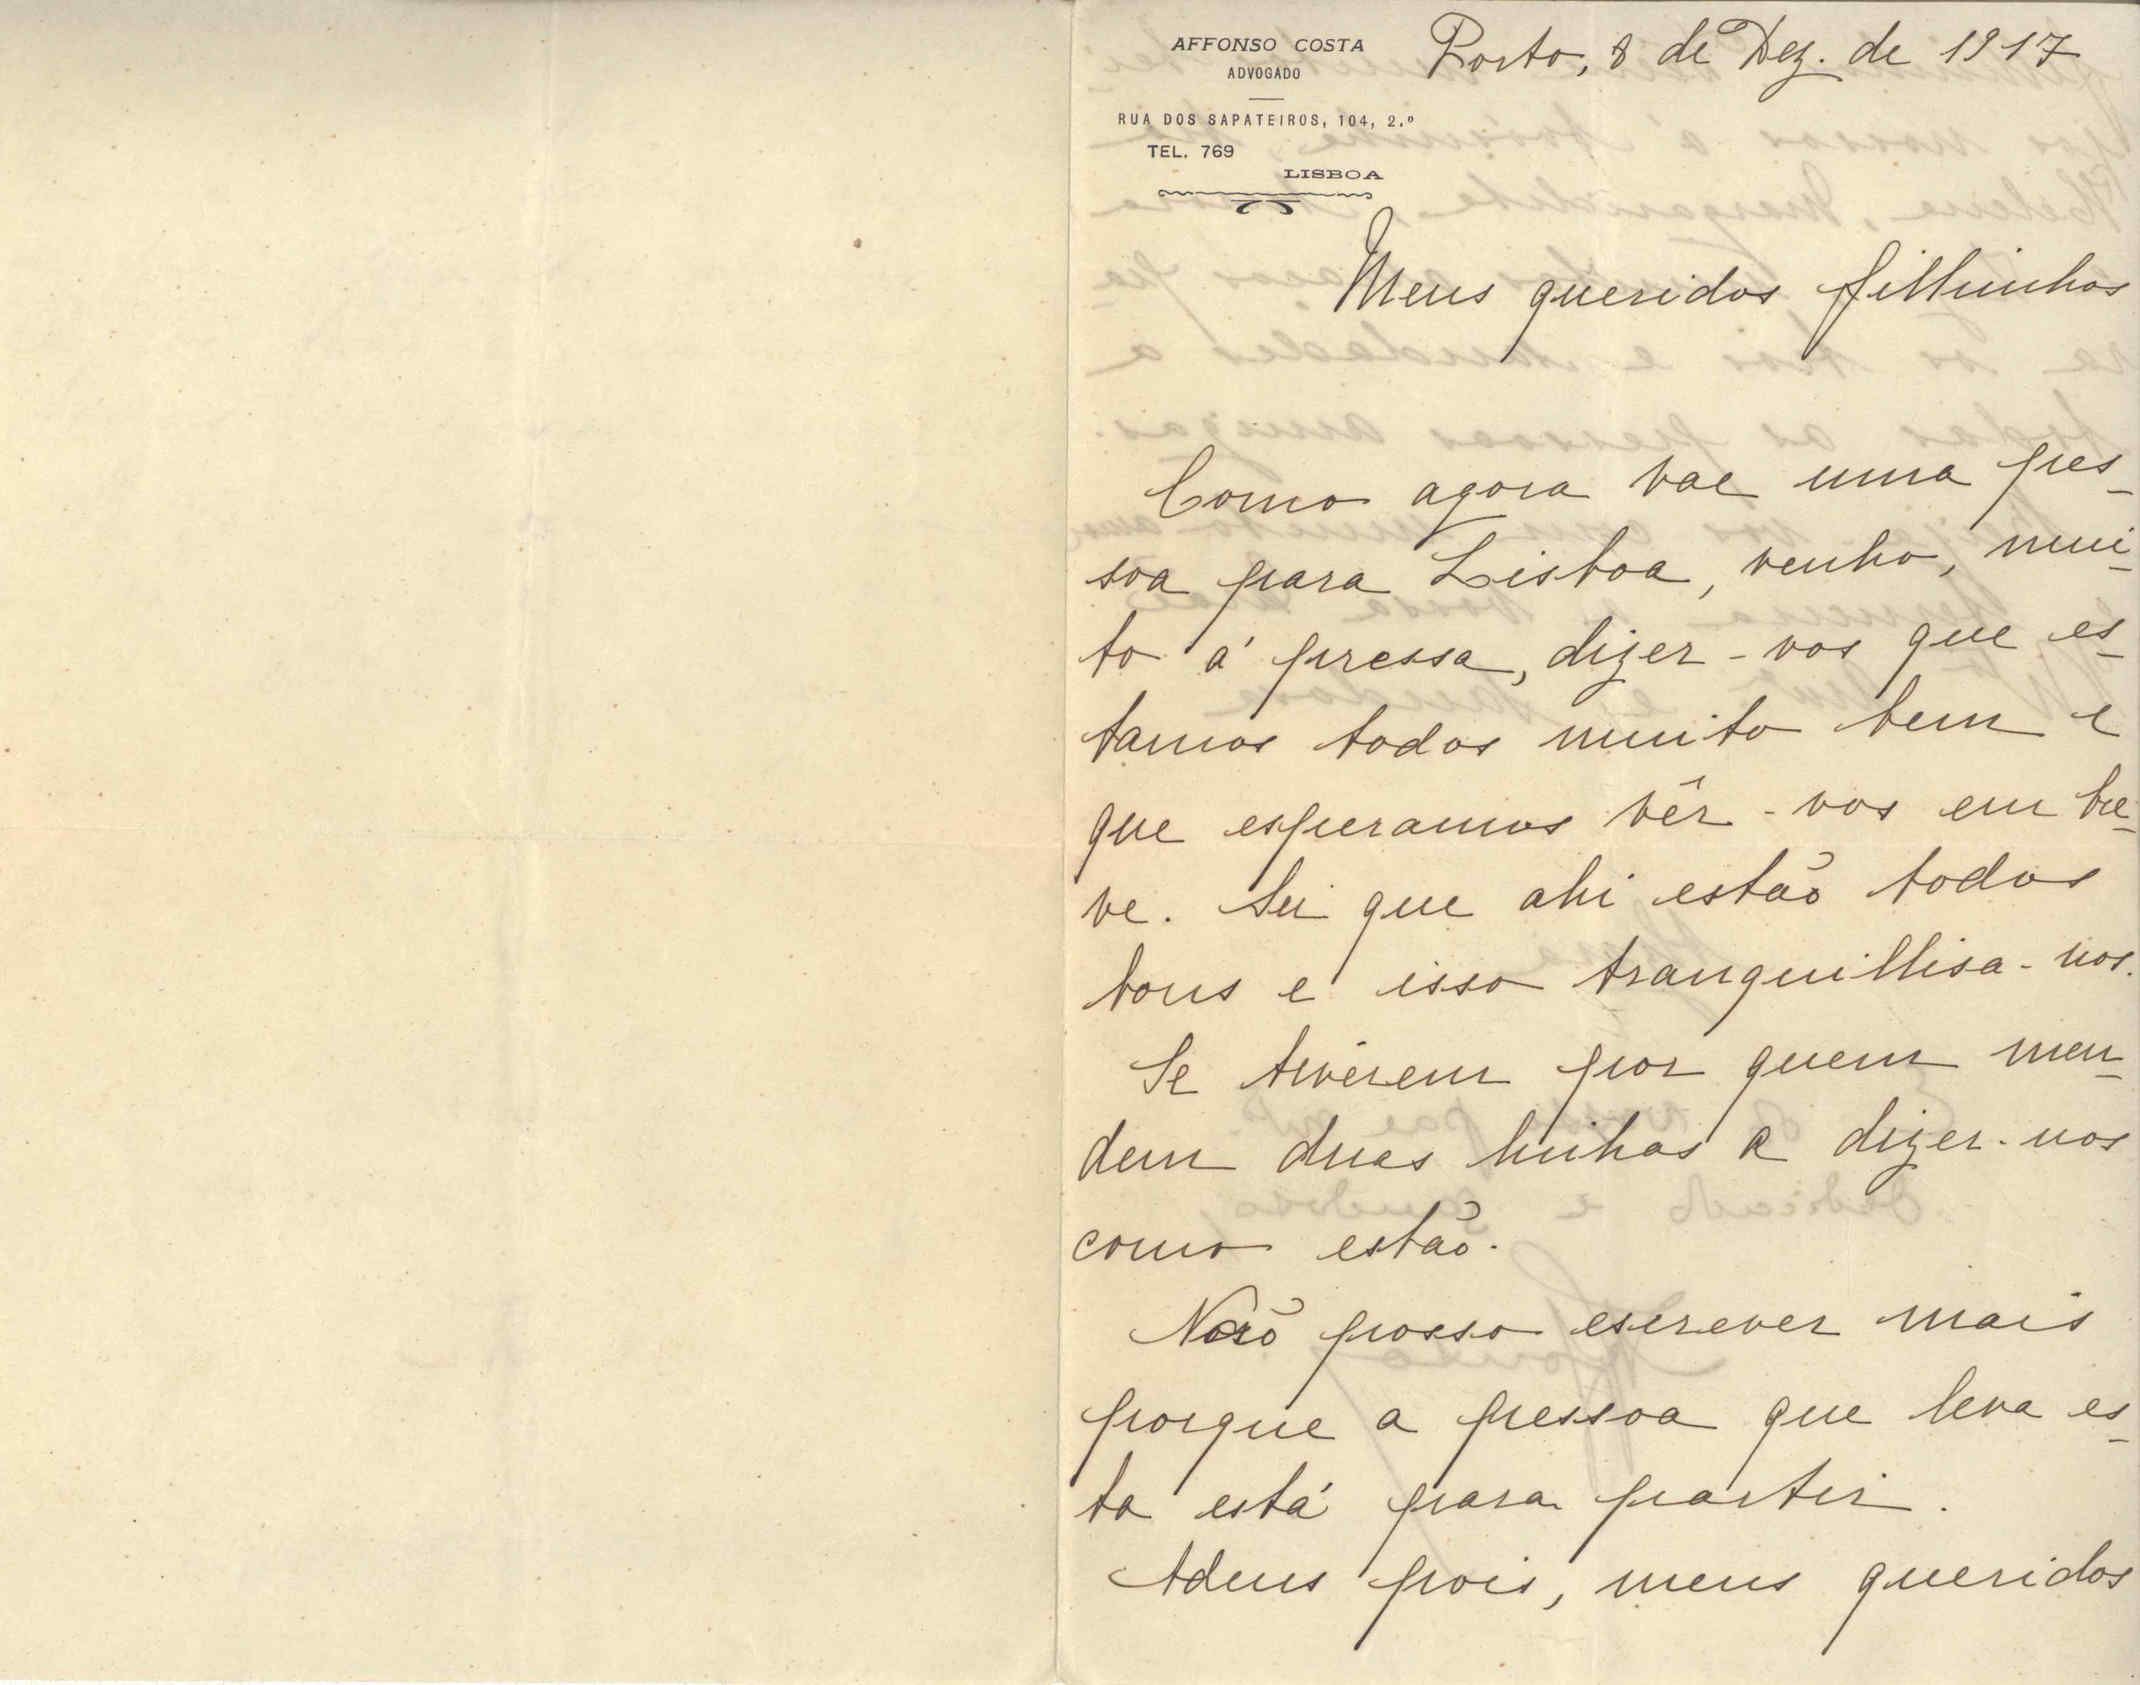 AFFONSO COSTA
ADVOGADO
RUA DOS SAPATEIROS, 104, 2.º
TEL. 769
LISBOA
Porto, 8 de Dez. de 1917
Meus queridos filhinhos
Como agora vae uma pes-
soa para Lisboa, venho, mui-
to á pressa, dizer-vos que es-
tamos todos muito bem e
que esperamos vêr-vos em bre-
ve. Sei que ahi estão todos
bons e isso tranquillisa-nos.
Se tiverem por quem man-
dem duas linhas a dizer-nos
como estão.
Não posso escrever mais
porque a pessoa que leva es-
ta está para partir.
Adeus pois, meus queridos